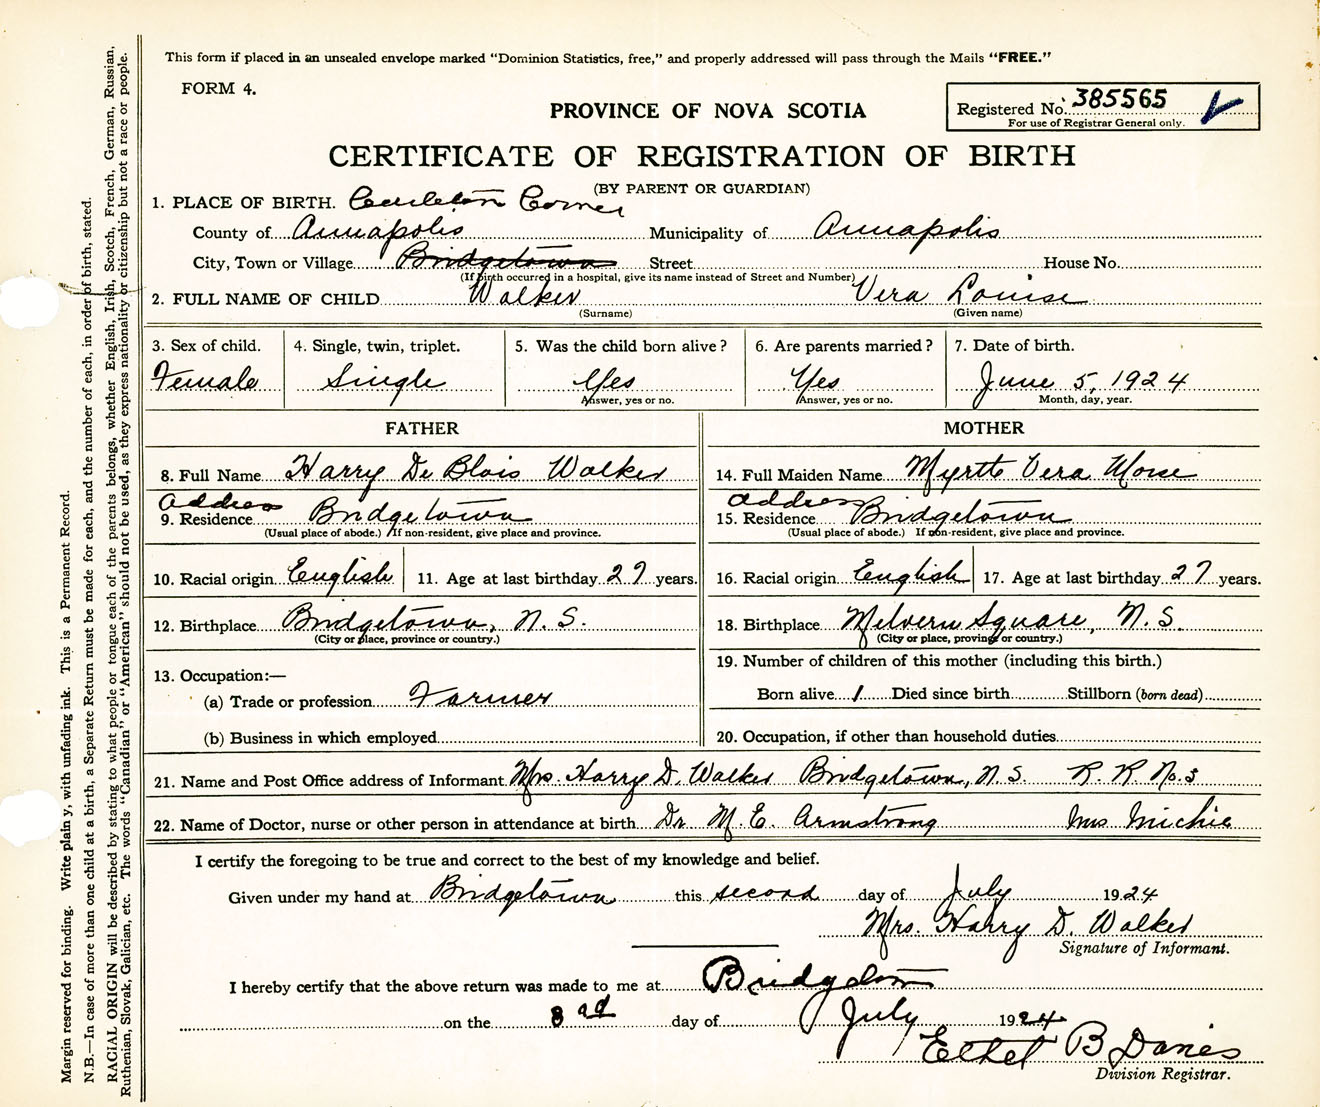 This form if placed in an unsealed envelope marked "Dominion Statistics, free," and properly addressed will pass through the Mails "FREE."
FORM 4.
PROVINCE OF NOVA SCOTIA
Registered No. 385565
For use of Registrar General only.
CERTIFICATE OF REGISTRATION OF BIRTH
(BY PARENT OR GUARDIAN)
1. PLACE OF BIRTH. Carleton Corner
County of Annapolis Municipality of Annapolis
City, Town or Village Bridgetown Street House No.
(If birth occurred in a hospital, give its name instead of Street and Number)
2. FULL NAME OF CHILD Walker Vera Louise
(Surname) (Given name)
3. Sex of child. 4. Single, twin, triplet. 5. Was the child born alive? 6. Are parents married? 7. Date of birth.
Female Single Yes Yes June 5, 1924
Answer, yes or no. Answer, yes or no. Month, day, year.
FATHER MOTHER
8. Full Name Harry De Blois Walker 14. Full Maiden Name Myrtle Vera Morse
Address address
9. Residence Bridgetown 15. Residence Bridgetown
(Usual place of abode.) If non-resident, give place and province. (Usual place of abode.) If non-resident, give place and province.
10. Racial origin English 11. Age at last birthday 27 years. 16. Racial origin English 17. Age at last birthday 27 years.
12. Birthplace Bridgetown, N.S. 18. Birthplace Melvern Square, N.S.
(City or place, province or country.) (City or place, province or country.)
13. Occupation:— 19. Number of children of this mother (including this birth.)
(a) Trade or profession Farmer Born alive 1 Died since birth Stillborn (born dead)
(b) Business in which employed 20. Occupation, if other than household duties
21. Name and Post Office address of Informant Mrs. Harry D. Walker Bridgetown, N.S. R. R. No. 3
22. Name of Doctor, nurse or other person in attendance at birth Dr M. E. Armstrong Mrs Michie
I certify the foregoing to be true and correct to the best of my knowledge and belief.
Given under my hand at Bridgetown this second day of July 1924
Mrs. Harry D. Walker
Signature of Informant.
I hereby certify that the above return was made to me at Bridgetown
on the 3rd day of July 1924
Ethel B Davies
Division Registrar.
Margin reserved for binding. Write plainly, with unfading ink. This is a Permanent Record.
N.B.—In case of more than one child at a birth, a Separate Return must be made for each, and the number of each, in order of birth, stated.
RACIAL ORIGIN will be described by stating to what people or tongue each of the parents belongs, whether English, Irish, Scotch, French, German, Russian,
Ruthenian, Slovak, Galician, etc. The words "Canadian" or "American" should not be used, as they express nationality or citizenship but not a race or people.